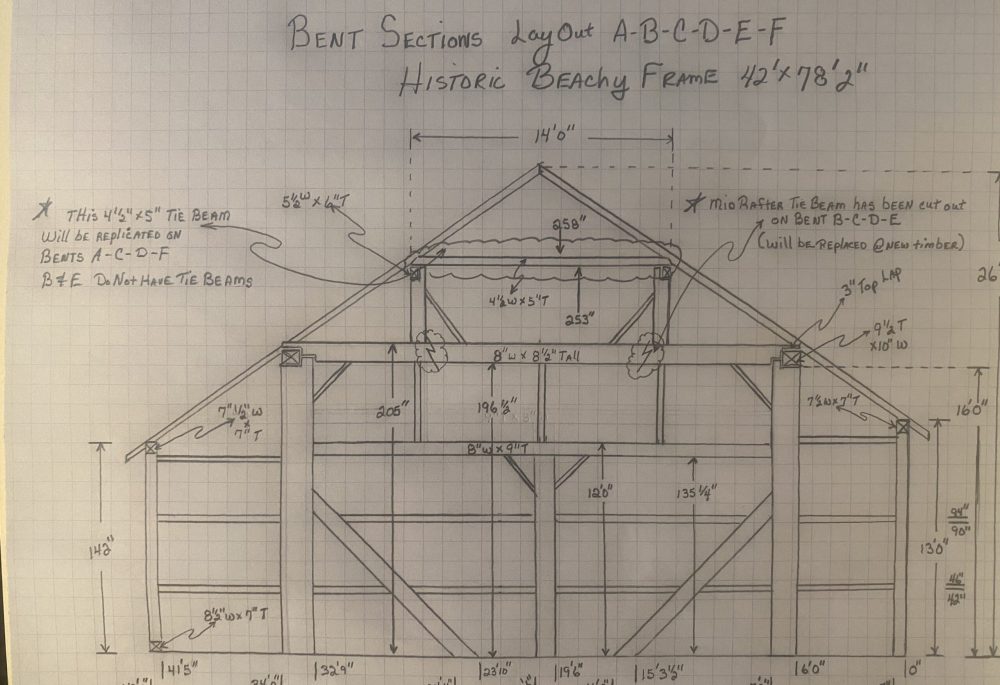 BENT SECTIONS LayOut A-B-C-D-E-F
HISTORIC BEACHY FRAME 42'x78'2"
14'0"
THIS 4½"x5" TIE BEAM
Will be REPLICATED ON
BENTS A-C-D-F
B&E Do Not HAVE TIE BEAMS
5½"W x 6"T
258"
MID RAFTER TIE BEAM HAS BEEN CUT OUT
ON BENT B-C-D-E
(Will be REPLACED @ NEW timber)
4½W x 5"T
253"
3" Top LAP
26'
9½ T
x10" W
8"W x 8½" TALL
205"
196½"
7"½"W
x
7"T
7½W x 7"T
16'0"
8"W x 9"T
12'0"
135¼"
142"
94"
90"
13'0"
46"
42"
8½"W x 7"T
41'5"
32'9"
23'10"
19'6"
15'3½"
6'0"
0"